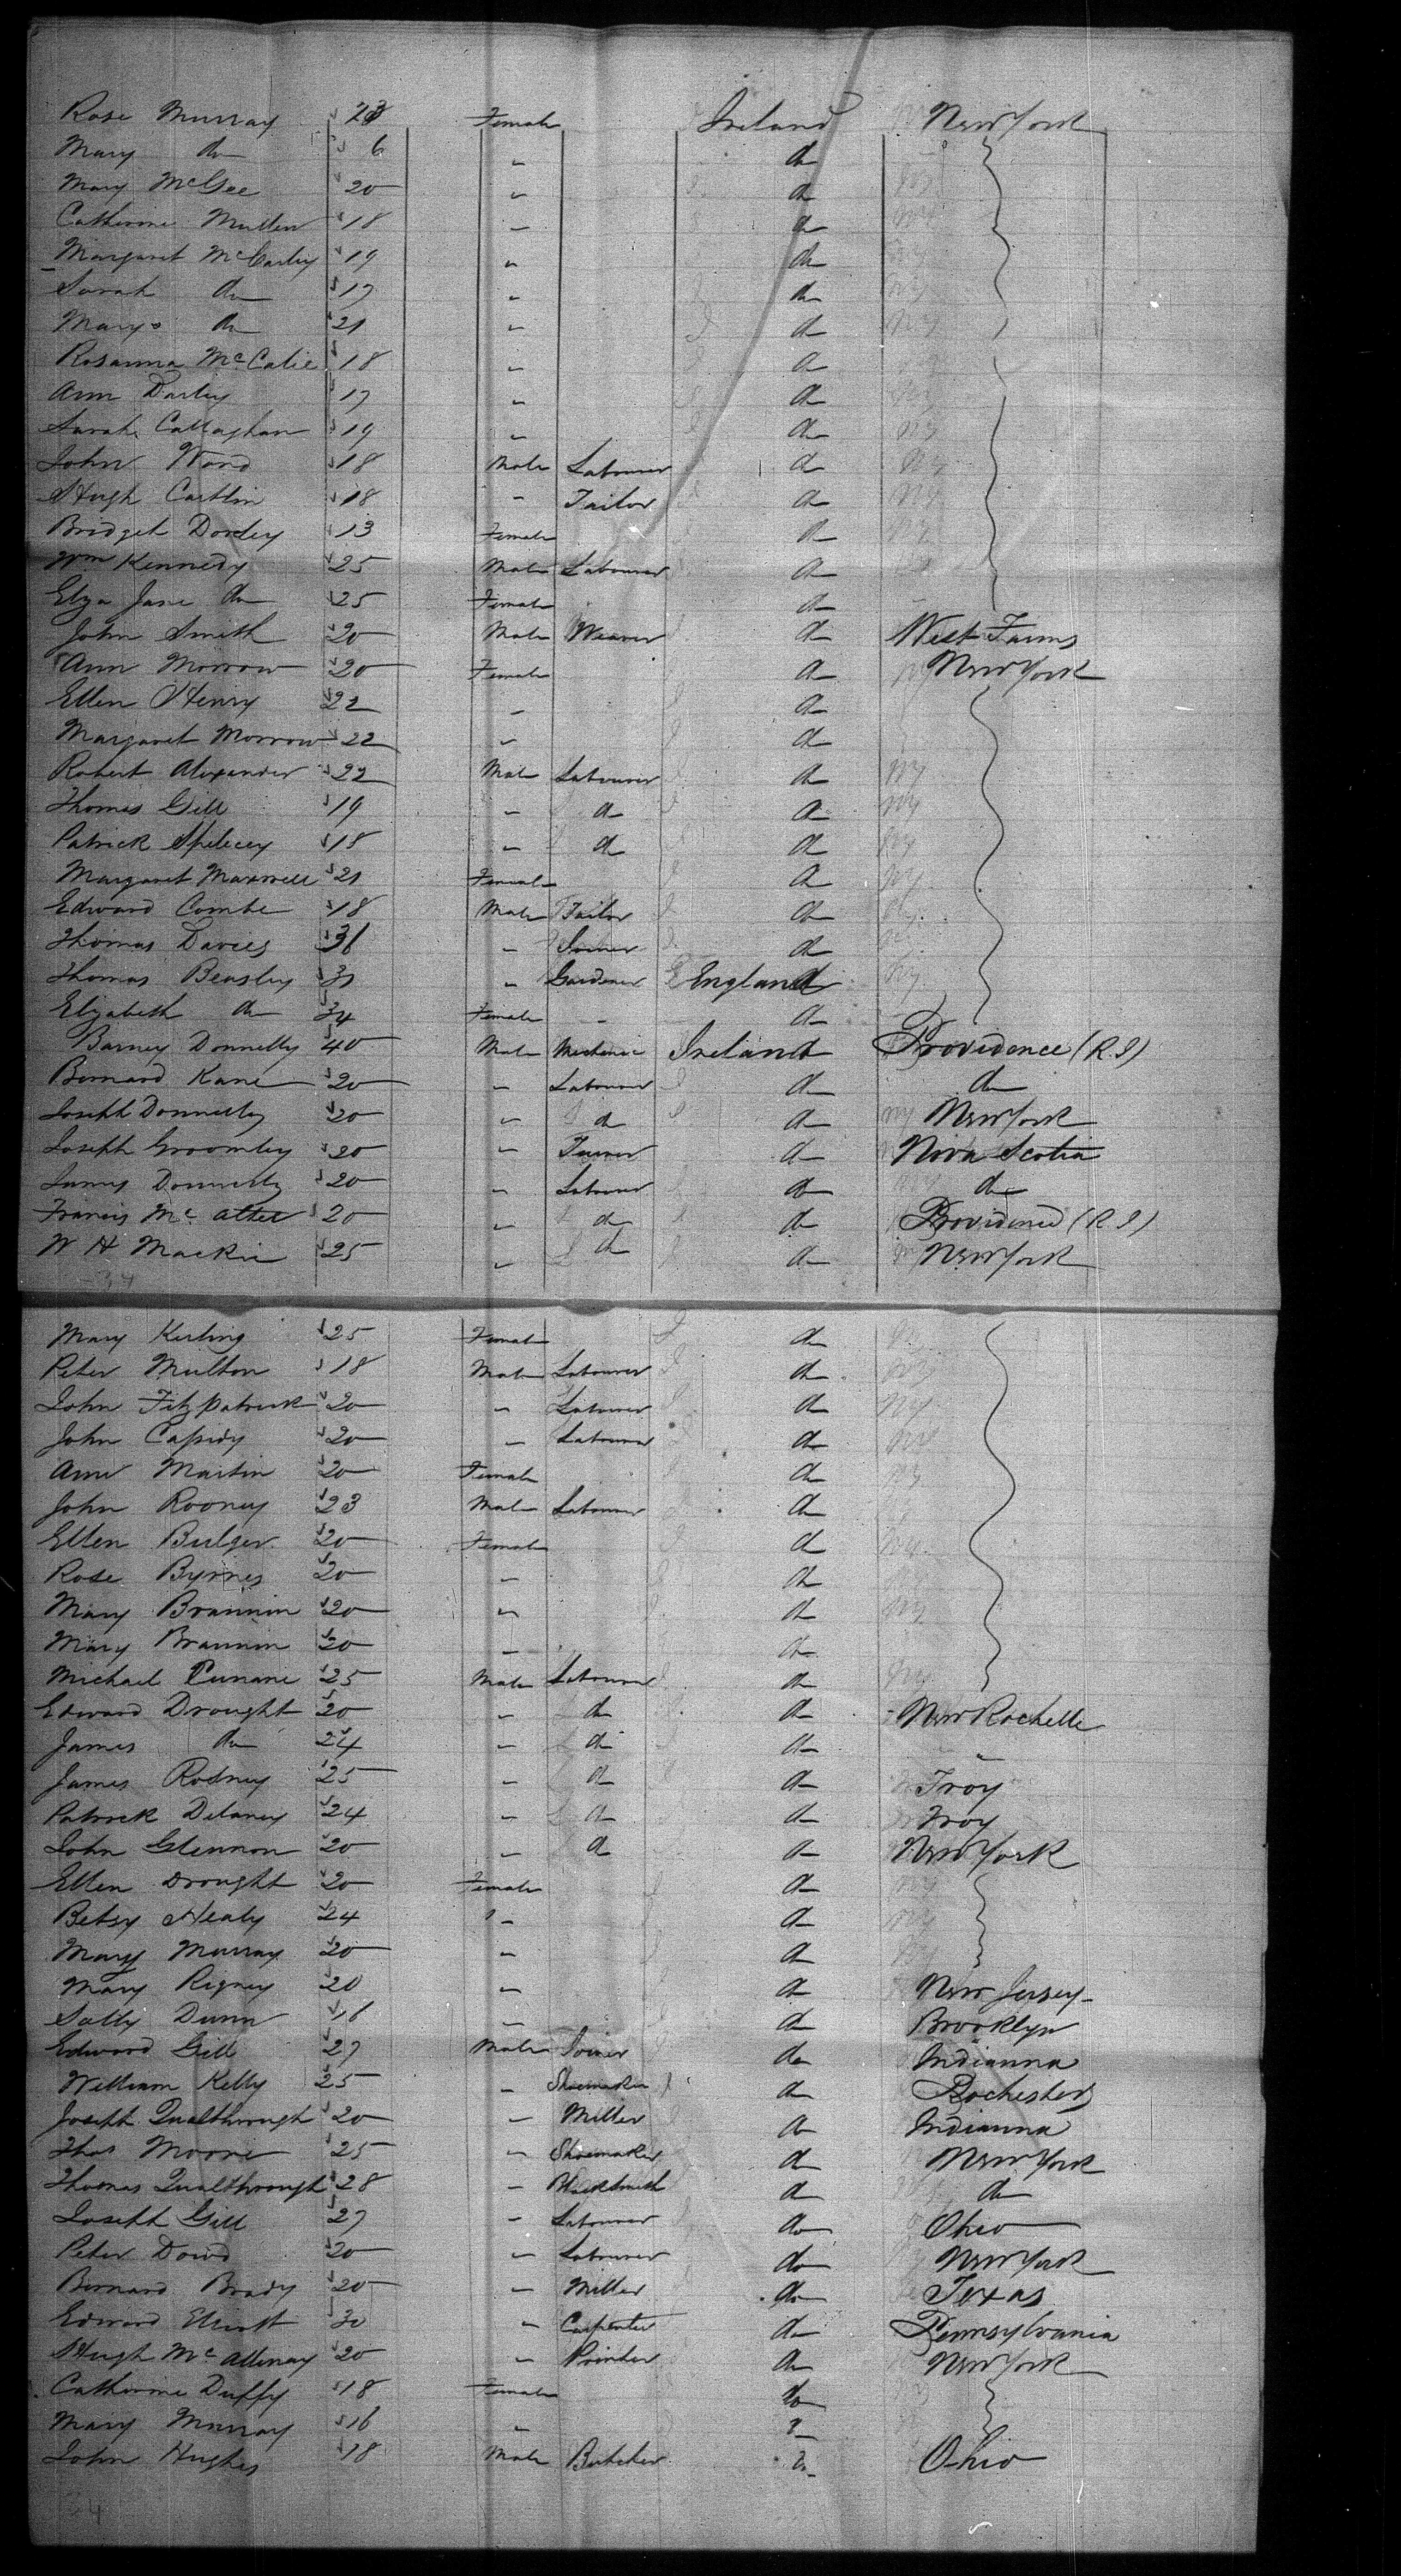 Rose Murray 23 Female Ireland New York
Mary do 6 " do
Mary McGee 20 " do
Catherine Mullen 18 " do
Margaret McCarley 19 " do
Sarah do 17 " do
Mary do 21 " do
Rosanna McCabe 18 " do
Ann Darley 17 " do
Sarah Callaghan 19 " do
John Ward 18 Male Labourer do
Hugh Cartlin 18 " Tailor do
Bridget Dorley 13 Female do
Wm Kennedy 25 Male Labourer do
Eliza Jane do 25 Female do
John Smith 20 Male Weaver do West Farms
Ann Morrow 20 Female do New York
Ellen Henry 22 " do
Margaret Morrow 22 " do
Robert Alexander 22 Male Labourer do
Thomas Gill 19 " do do
Patrick 18 " do do
Margaret Maxwell 21 Female do
Edward Combe 18 Male Tailor do
Thomas Davies 36 " Joiner do
Thomas Beasley 31 " Gardener England
Elizabeth do 34 Female do
Barney Donnelly 40 Male Mechanic Ireland Providence (R.I)
Bernard Kane 20 " Labourer do do
Joseph Donnelly 20 " do do New York
Joseph Groomley 20 " do Nova Scotia
James Donnelly 20 " Labourer do do
Francis McAtee 20 " do do Providence (R.I)
W H Mackin 25 " do do New York
34
Mary Kerling 25 Female do
Peter Multon 18 Male Labourer do
John Fitzpatrick 20 " Labourer do
John Cassidy 20 " Labourer do
Ann Martin 20 Female do
John Rooney 23 Male Labourer do
Ellen Bulger 20 Female do
Rose Byrnes 20 " do
Mary Brannin 20 " do
Mary Brannin 20 " do
Michael Cunane 25 Male Labourer do
Edward Drought 20 " do do New Rochelle
James do 24 " do do "
James Rodney 25 " do do Troy
Patrick Delaney 24 " do do Troy
John Glennon 20 " do do New York
Ellen Drought 20 Female do
Betsy Healy 24 " do
Mary Murray 20 " do
Mary Rigney 20 " do New Jersey
Sally Dunn 16 " do Brooklyn
Edward Gill 27 Male Joiner do Indianna
William Kelly 25 " Shoemaker do Rochester
Joseph Qualthrough 20 " Miller do Indianna
Thos Moore 25 " Shoemaker do New York
Thomas Qualthrough 28 " Blacksmith do do
Joseph Gill 27 " Labourer do Ohio
Peter Dowd 20 " Labourer do New York
Bernard Brady 20 " Miller do Texas
Edward Elliott 30 " Carpenter do Pennsylvania
Hugh McAllenay 20 " Printer do New York
Catherine Duffy 18 Female do
Mary Murray 16 " "
John Hughes 18 Male Butcher " Ohio
34